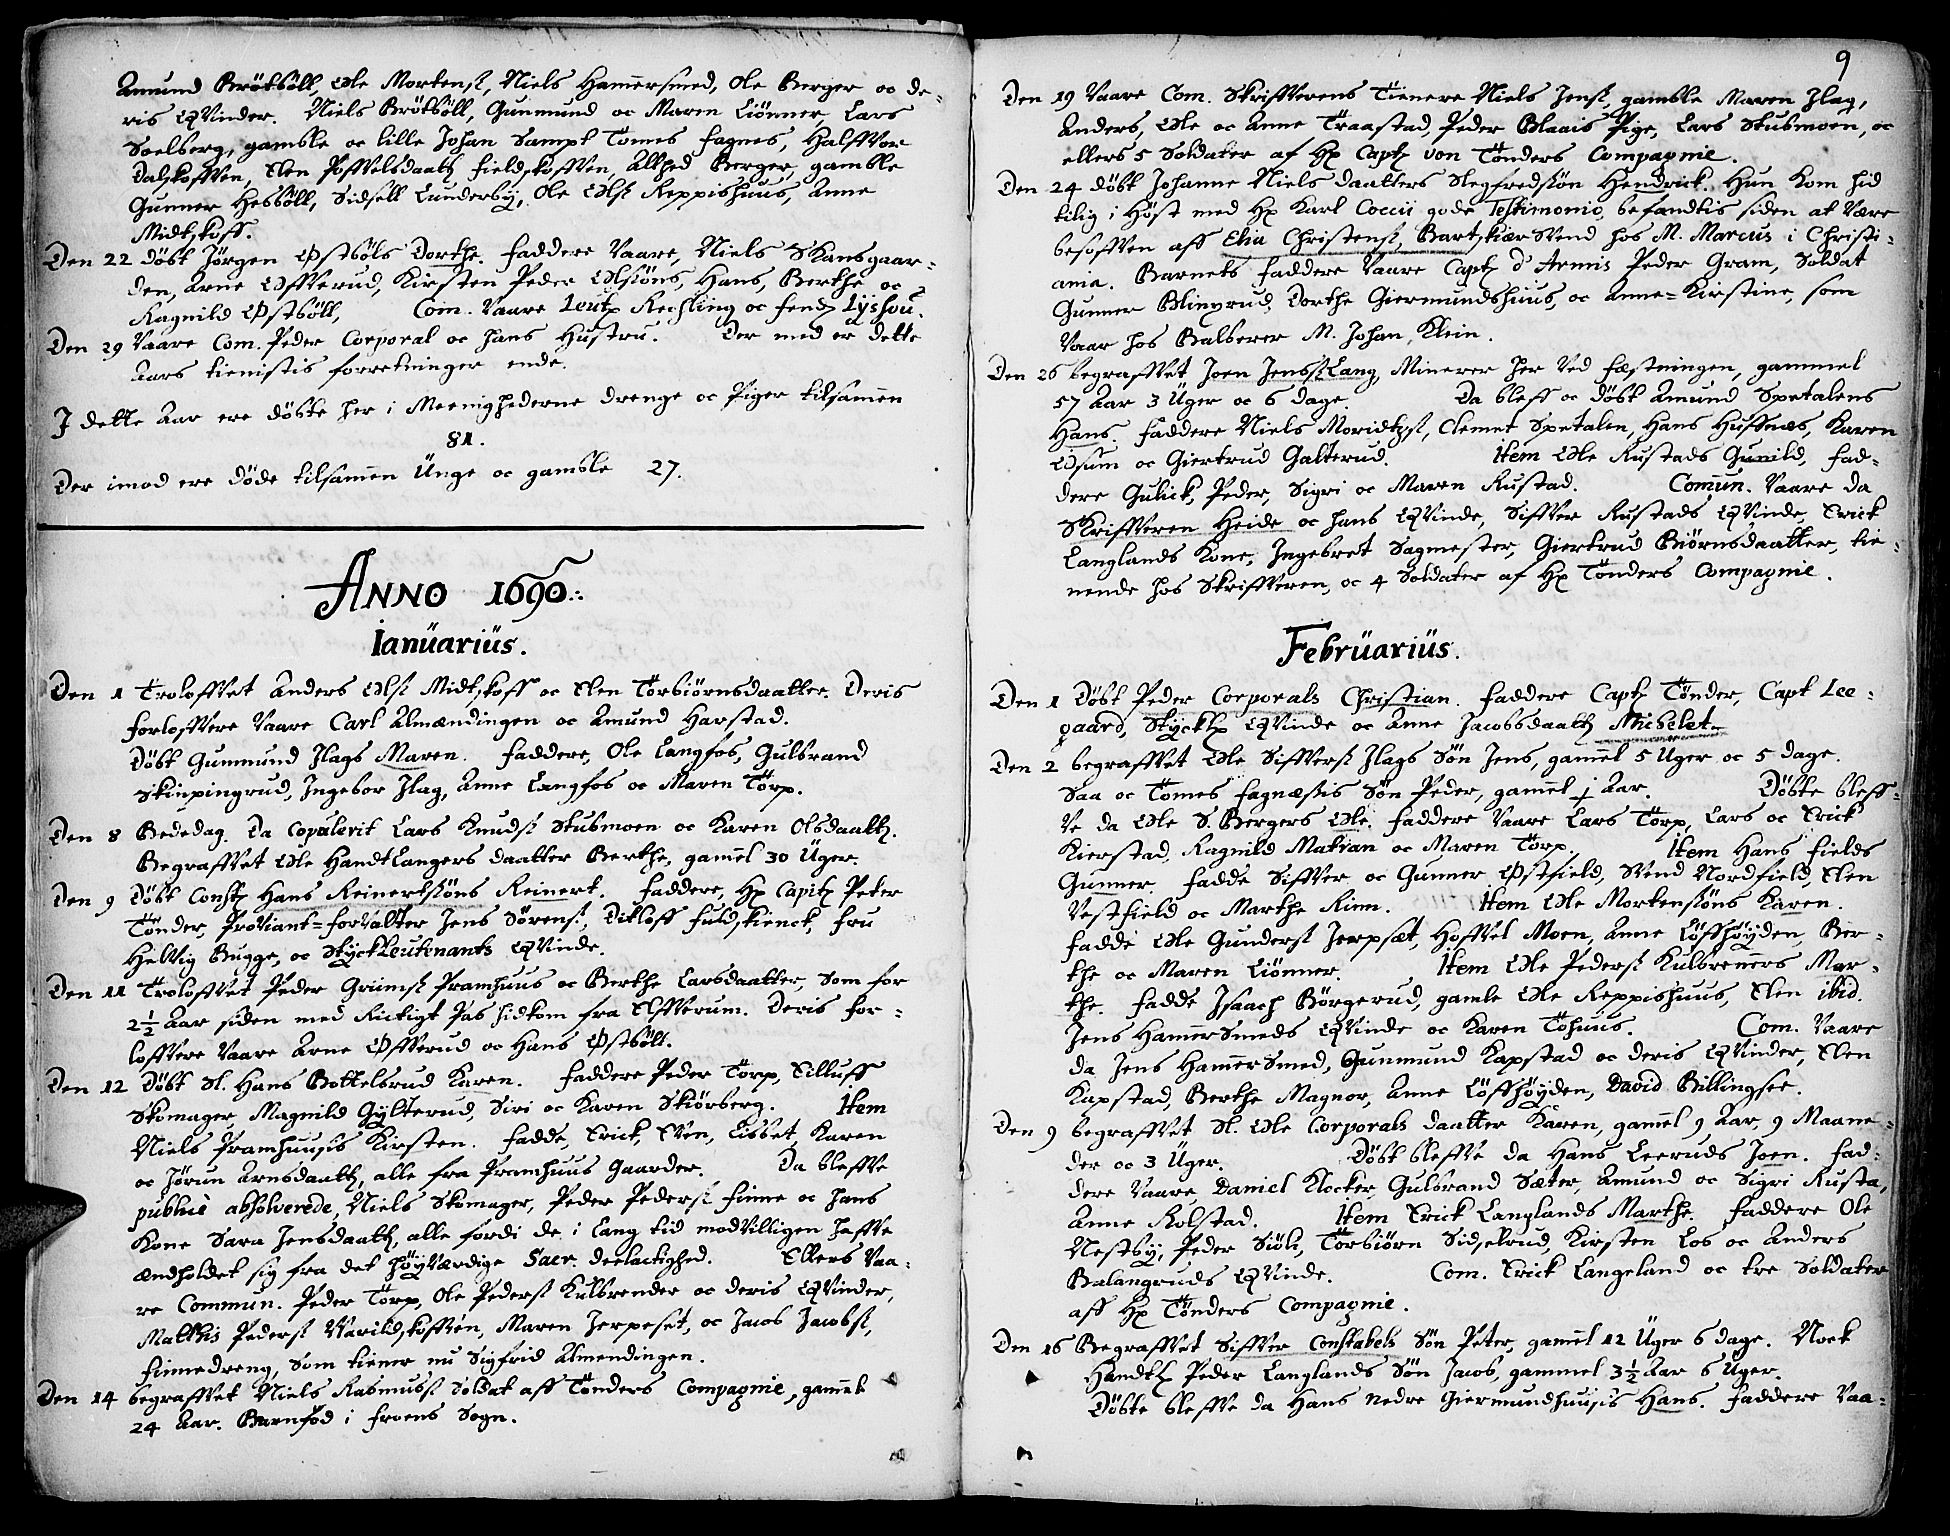 Amund Brötsöll, Ole Mortens?, Niels Hamersmed, Ole Berger oc de-
ris Qvinder. Niels Brötsöll, Gunmund oc Maren Liönner, Lars
Soelberg, gamble oc lille Johan Sampt Tomes fagnes, Halffvor
Dalskoffven, Elen Poffvelsdaatter fieldskoffven, Allhed Berger, gamble
Gunner Hessöll, Sidsell Lunderby, Ole Ols? Reppishuus, Anne
Midtskoff.
Den 22 döbt Jörgen Östböls Dorthe. faddere Vaare, Niels Skansgaar-
den, Arne Öffverud, Kirsten Peder Olsöns, Hans, Berthe oc
Ragnild Östböll, Com. Vaare Leut? Reesling oc fend? Lyssou.
Den 29 Vaare Com. Peder Corporal oc hans Hustru. Der med er dette
Aars tienistis forretninger ende.
I dette Aar ere döbte her i Meenighederne drenge oc Piger tilsamen
81.
Der imod ere döde tilsamen Ünge oc gamble 27.
ANNO 1690.
Ianüariüs.
Den 1 Troloffvet Anders Ols? Midtskoff oc Elen Törbiörnsdaatter. Deris
forloffvere Vaare Carl Almændingen oc Amund Harstad.
Döbt Gunmund Ilags Maren. faddere, Ole Langfos, Gulbrand
Skinpingrud, Ingebor Ilag, Anne Langfos oc Maren Törp.
Den 8 Bededag. Da Copulerit Lars Knuds? Stubmoen oc Karen Olsdaatter.
Begraffvet Ole Handtlangers daatter Berthe, gamel 30 Üger.
Den 9 Döbt Const? Hans Reinertsöns Reinert. faddere, H? Capit? Peter
Tönder, Proviant-forvalter Jens Sörens?, Ditloff fuldskienck, fru
Helvig Bugge, oc Styckleutenants Qvinde.
Den 11 Troloffvet Peder Grims? Pramhuus oc Berthe Larsdaatter, Som for
2½ Aar siden med Rictigt Pas hidkom fra Elffverum. Deris for-
loffvere Vaare Arne Öffverud oc Hans Östböll.
Den 12 Döbt Sl. Hans Bottelsrud Karen. faddere Peder Törp, Silluff
Skomager, Magnild Gylterud, Siri oc Karen Skiörberg. Item
Niels Pramhuusis Kirsten. fadde, Erick, Sven, Lisbet, Karen
oc Jörun Arnsdaatter, alle fra Pramhuus Gaarder. Da bleffve
publicè absolverede, Niels Skomager, Peder Peders? finne oc hans
Kone Sara Jensdaatter, alle fordi de i Lang tid modvilligen haffve
ændholdet sig fra det höyværdige Sacr. deelactighed. Ellers Vaa-
re Commun. Peder Törp, Ole Peders? Kulbrender oc deris Qvinder,
Matthis Peders? Varildskoffven, Maren Jerpeset, oc Jacob Jacobs?,
finnedreng, Som tiener nu Sigfrid Almendingen.
Den 14 begraffvet Niels Rasmus? Soldat aff Tönders Compagnie, gamel
24 Aar. Barnfod i froens Sogn.
9
Den 19 Vaare Com. Skriffverens Tienere Niels Jens?, gamble Maren Ilag,
Anders, Ole oc Anne Traastad, Peder Blaais Pige, Lars Stubmoen, oc
ellers 5 Soldater af H? Capt? von Tönders Compagnie.
Den 24 döbt Johanne Niels daatters Slegfredsön Hendrick. Hun kom hid
tilig i Höst med H? Karl Coccii gode Testimonio, befandtis siden at Være
besoffven aff Elia Christens?, Bartskiær Svend hos M. Marcus i Christi-
ania. Barnets faddere Vaare Capt? d'Armis Peder Gram, Soldat
Gunner Blingrud, Dorthe Giermundshuus, oc Anne-Kirstine, som
Vaar hos Balberer M. Johan Klein.
Den 26 begraffvet Joen Jenss? Lang, Minerer her Ved fæstningen, gammel
57 Aar 3 Üger oc 6 dage. Da bleff oc döbt Amund Spetalens
Hans. faddere Niels Moridts?, Clemet Spetalen, Hans Hussnæs, Karen
Osum oc Giertrud Galterud. Item Ole Rustads Gunild, fad-
dere Gulick, Peder, Sigri oc Maren Rustad. Comun. Vaare da
Skriffveren Heide oc hans Qvinde, Siffver Rustads Qvinde, Erick
Langlands Kone, Ingebret Sagmester, Giertrud Biörnsdaatter, tie-
nende hos Skriffveren, oc 4 Soldater af H? Tönders Compagnie.
Februariüs.
Den 1 Döbt Peder Corporals Christian. faddere Capt? Tönder, Capt Lee-
gaard, Styckt? Qvinde oc Anne Jacobsdaatter Michelet.
Den 2 begraffvet Ole Siffvers? Ilags Sön Jens, gamel 5 Uger oc 5 dage.
Saa oc Tomes fagnæssis Sön Peder, gamel 1 Aar. Döbte bleff-
ve da Ole S. Bergers Ole. faddere Vaare Lars Törp, Lars oc Erick
Kierstad, Ragnild Matrian oc Maren Törp. Item Hans fields
Gunner. fadde Siffver oc Gunner Östfield, Svend Nordfield, Elen
Vestfield oc Marthe Rinn. Item Ole Mortensöns Karen.
fadde Ole Gunders? Jerpset, Hoffvel Moen, Anne Löffhöyden, Ber-
the oc Maren Liönner. Item Ole Peders? Kulbreners Mar-
the. fadde Isaach Börgerud, gamle Ole Reppishuus, Elen ibid.
Jens Hamersmeds Qvinde oc Karen Töhuus. Com. Vaare
da Jens Hamersmed, Gunmund Kapstad oc deris Qvinder, Elen
Kapstad, Berthe Magnor, Anne Löffhöyden, David Billingsee.
Den 9 begraffvet Sl. Ole Corporals daatter Karen, gamel 9 Aar, 9 Maane-
der oc 3 Üger. Döbt bleffve da Hans Leeruds Joen. fad-
dere Vaare Daniel Klocker, Gulbrand Sæter, Amund oc Sigri Rusta,
Anne Rolstad. Item Erick Langlands Marthe. faddere Ole
Nestby, Peder Siöli, Törbiörn Sidselrud, Kirsten Los oc Anders
Balangruds Qvinde. Com. Erick Langeland oc tre Soldater
aff H? Tönders Compagnie.
Den 16 Begraffvet Siffver Constabels Sön Peter, gamel 12 Üger 6 dage. Nock
Handt? Peder Langlands Sön Jacob, gammel 3½ Aar 6 Üger.
Döbte bleffve da Hans Nedre Giermundhuusis Hans. faddere Vaa-